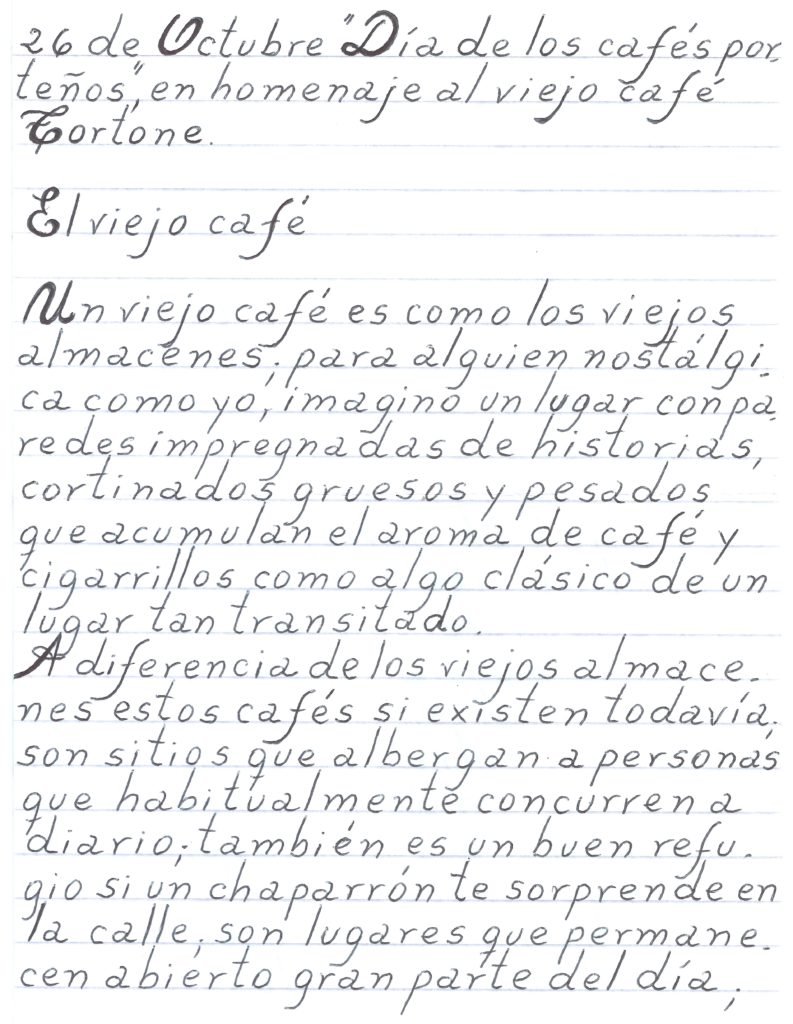 26 de Octubre "Día de los cafés por-
teños", en homenaje al viejo café
Tortone.
El viejo café
Un viejo café es como los viejos
almacenes; para alguien nostálgi-
ca como yo, imagino un lugar con pa-
redes impregnadas de historias,
cortinados gruesos y pesados
que acumulan el aroma de café y
cigarrillos como algo clásico de un
lugar tan transitado.
A diferencia de los viejos almace-
nes estos cafés si existen todavía;
son sitios que albergan a personas
que habitualmente concurren a
diario; también es un buen refu-
gio si un chaparrón te sorprende en
la calle; son lugares que permane-
cen abierto gran parte del día;